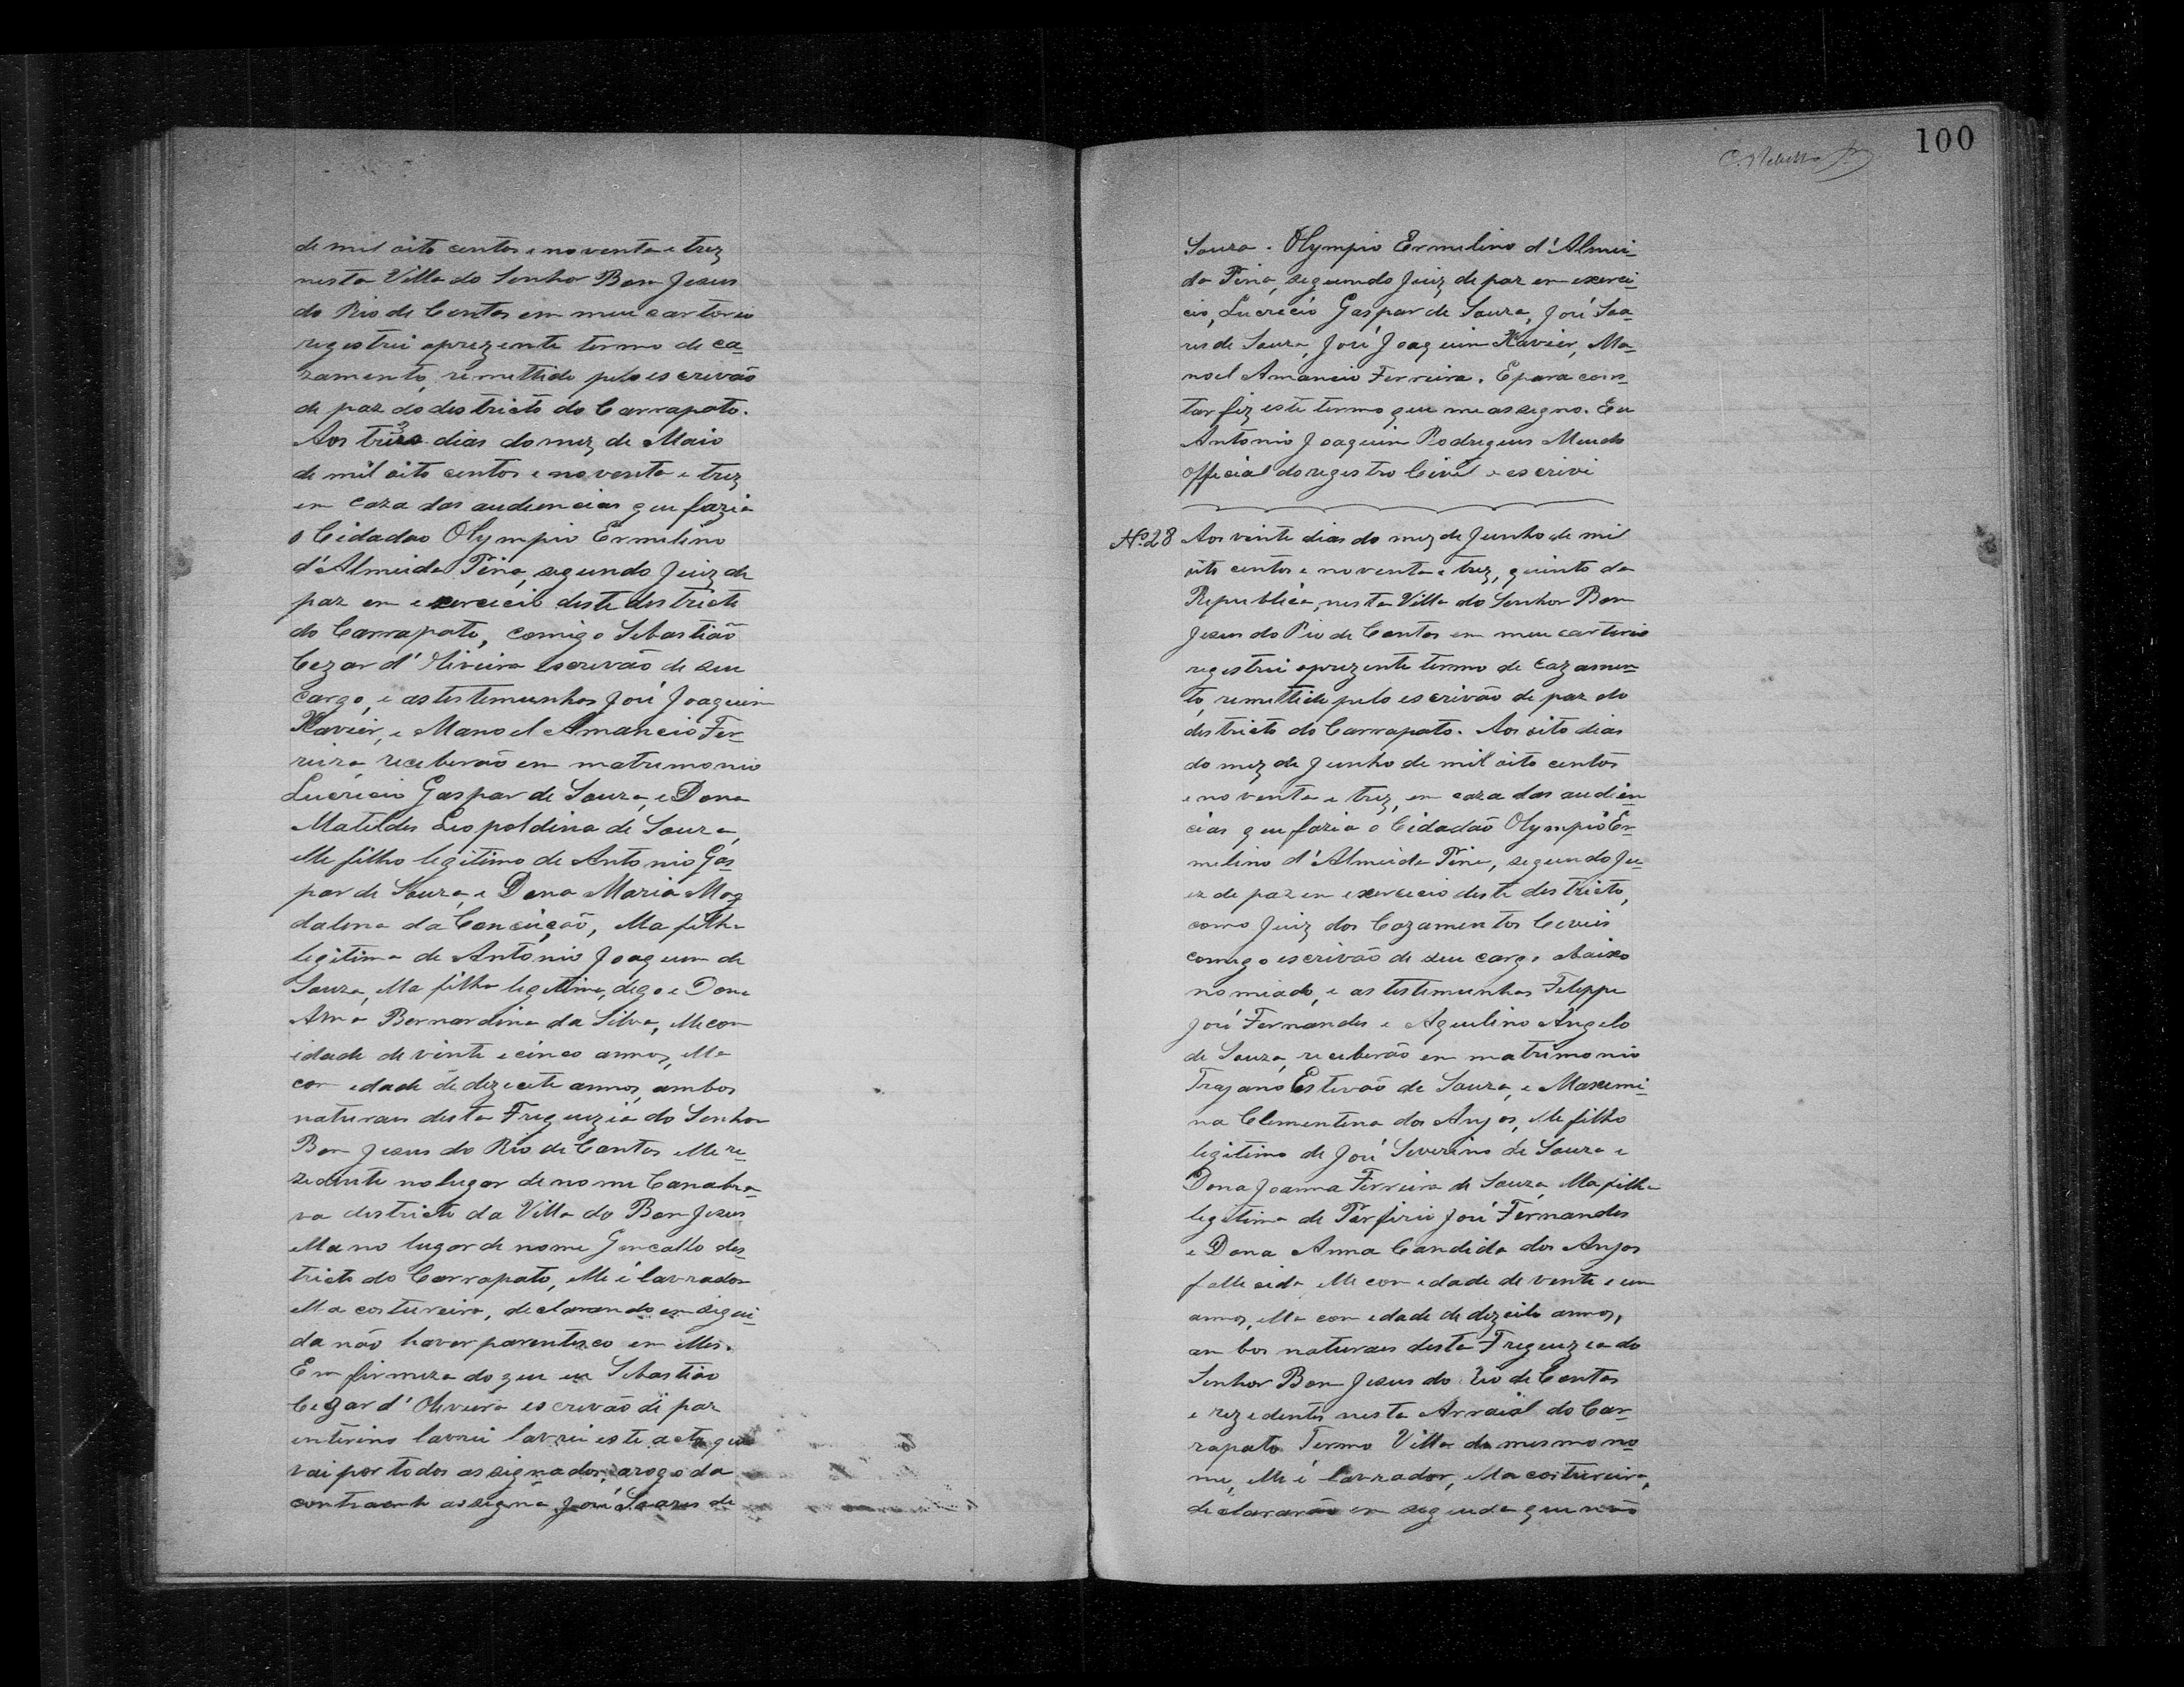 de mil oito centos e noventa e trez
nesta Villa do Senhor Bom Jesus
do Rio de Contas em meu cartorio
registrei oprezente termo de ca-
zamento, remettido pelo escrevão
de paz do destricto do Carrapato.
Aos tres dias do mez de Maio
de mil oito centos e noventa e trez
em caza das audiencias que fazia
o Cidadão Olympio Ermelino
d'Almeida Pina, segundo Juiz de
paz em exercicio deste destricto
do Carrapato, comigo Sebastião
Cezar d'Oliveira escrevão de seu
cargo, e as testemunhas José Joaquim
Xavier, e Manoel Amancio Fer-
reira, receberão em matrimonio
Lucrecio Gaspar de Souza, e Dona
Matildes Leopoldina de Souza,
elle filho legitimo de Antonio Gas-
par de Souza, e Dona Maria Mag
dalena da Conceição, ella filha
legitima de Antonio Joaquim de
Souza, ella filha legitima, digo e Dona
Anna Bernardina da Silva, elle com
idade de vinte e cinco annos, ella
com edade de dezecete annos, ambos
naturaes desta Freguezia do Senhor
Bom Jesus do Rio de Contas elle re-
zedente no lugar de nome Canabra-
va destricto da Villa do Bom Jesus
ella no lugar de nome Goncallo des-
tricto do Carrapato, elle é lavrador
ella costureira, declarando em segui-
da não haver parentesco em elles.
Em firmeza do que eu Sebastião
Cezar d'Oliveira escrevão de paz
enterino lavrei lavrei este acto que
vai por todos assignados, arogo da
contraente assigna José Soares de
100
Souza. Olympio Ermelino d'Almei-
da Pina, segundo Juiz de paz em exerci-
cio, Lucrecio Gaspar de Souza, José Soa-
res de Souza, José Joaquim Xavier, Ma-
noel Amancio Ferreira. E para cons-
tar fiz este termo que me assegno. Eu
Antonio Joaquim Rodrigues
Official do registro Civil o escrivi
Nº 28 Aos vinte dias do mez de Junho de mil
oito centos e noventa e trez, quinto da
Republica, nesta Villa do Senhor Bom
Jesus do Rio de Contas em meu cartorio
registrei oprezente termo de cazamen-
to, remettido pelo escrivão de paz do
destricto do Carrapato. Aos oito dias
do mez de Junho de mil oito centos
e noventa e trez, em caza das audien-
cias que fazia o Cidadão Olympio Er-
melino d'Almeida Pina, segundo Ju-
iz de paz em exercicio deste destricto,
como Juiz dos Cazamentos Cevies
comigo escrivão de seu cargo abaixo
nomiado, e as testemunhas Felippe
José Fernandes e Aquilino Angelo
de Souza, receberão em matrimonio
Trajano Estevão de Souza, e Maximi-
na Clementina dos Anjos, elle filho
legitimo de José Severino de Souza e
Dona Joanna Ferreira de Souza, ella filha
legitima de Porfirio José Fernandes
e Dona Anna Candida dos Anjos
fallecida elle com edade de vente e um
annos, ella com edade de dezoito annos,
am bos naturaes desta Freguezia do
Senhor Bom Jesus do Rio de Contas
e rezedentes nesta Arraial do Car-
rapato Termo Villa do mesmo no-
me, elle é lavrador, ella costureira,
declararão em seguida que não